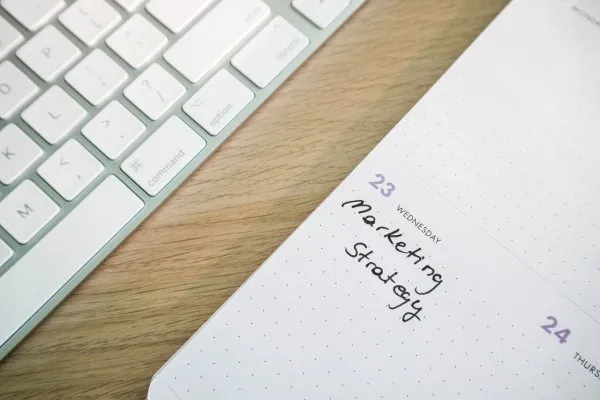 O
P
L
K
M
control
option
command
⌘
MONDAY
23
WEDNESDAY
Marketing
Strategy
24
THURS